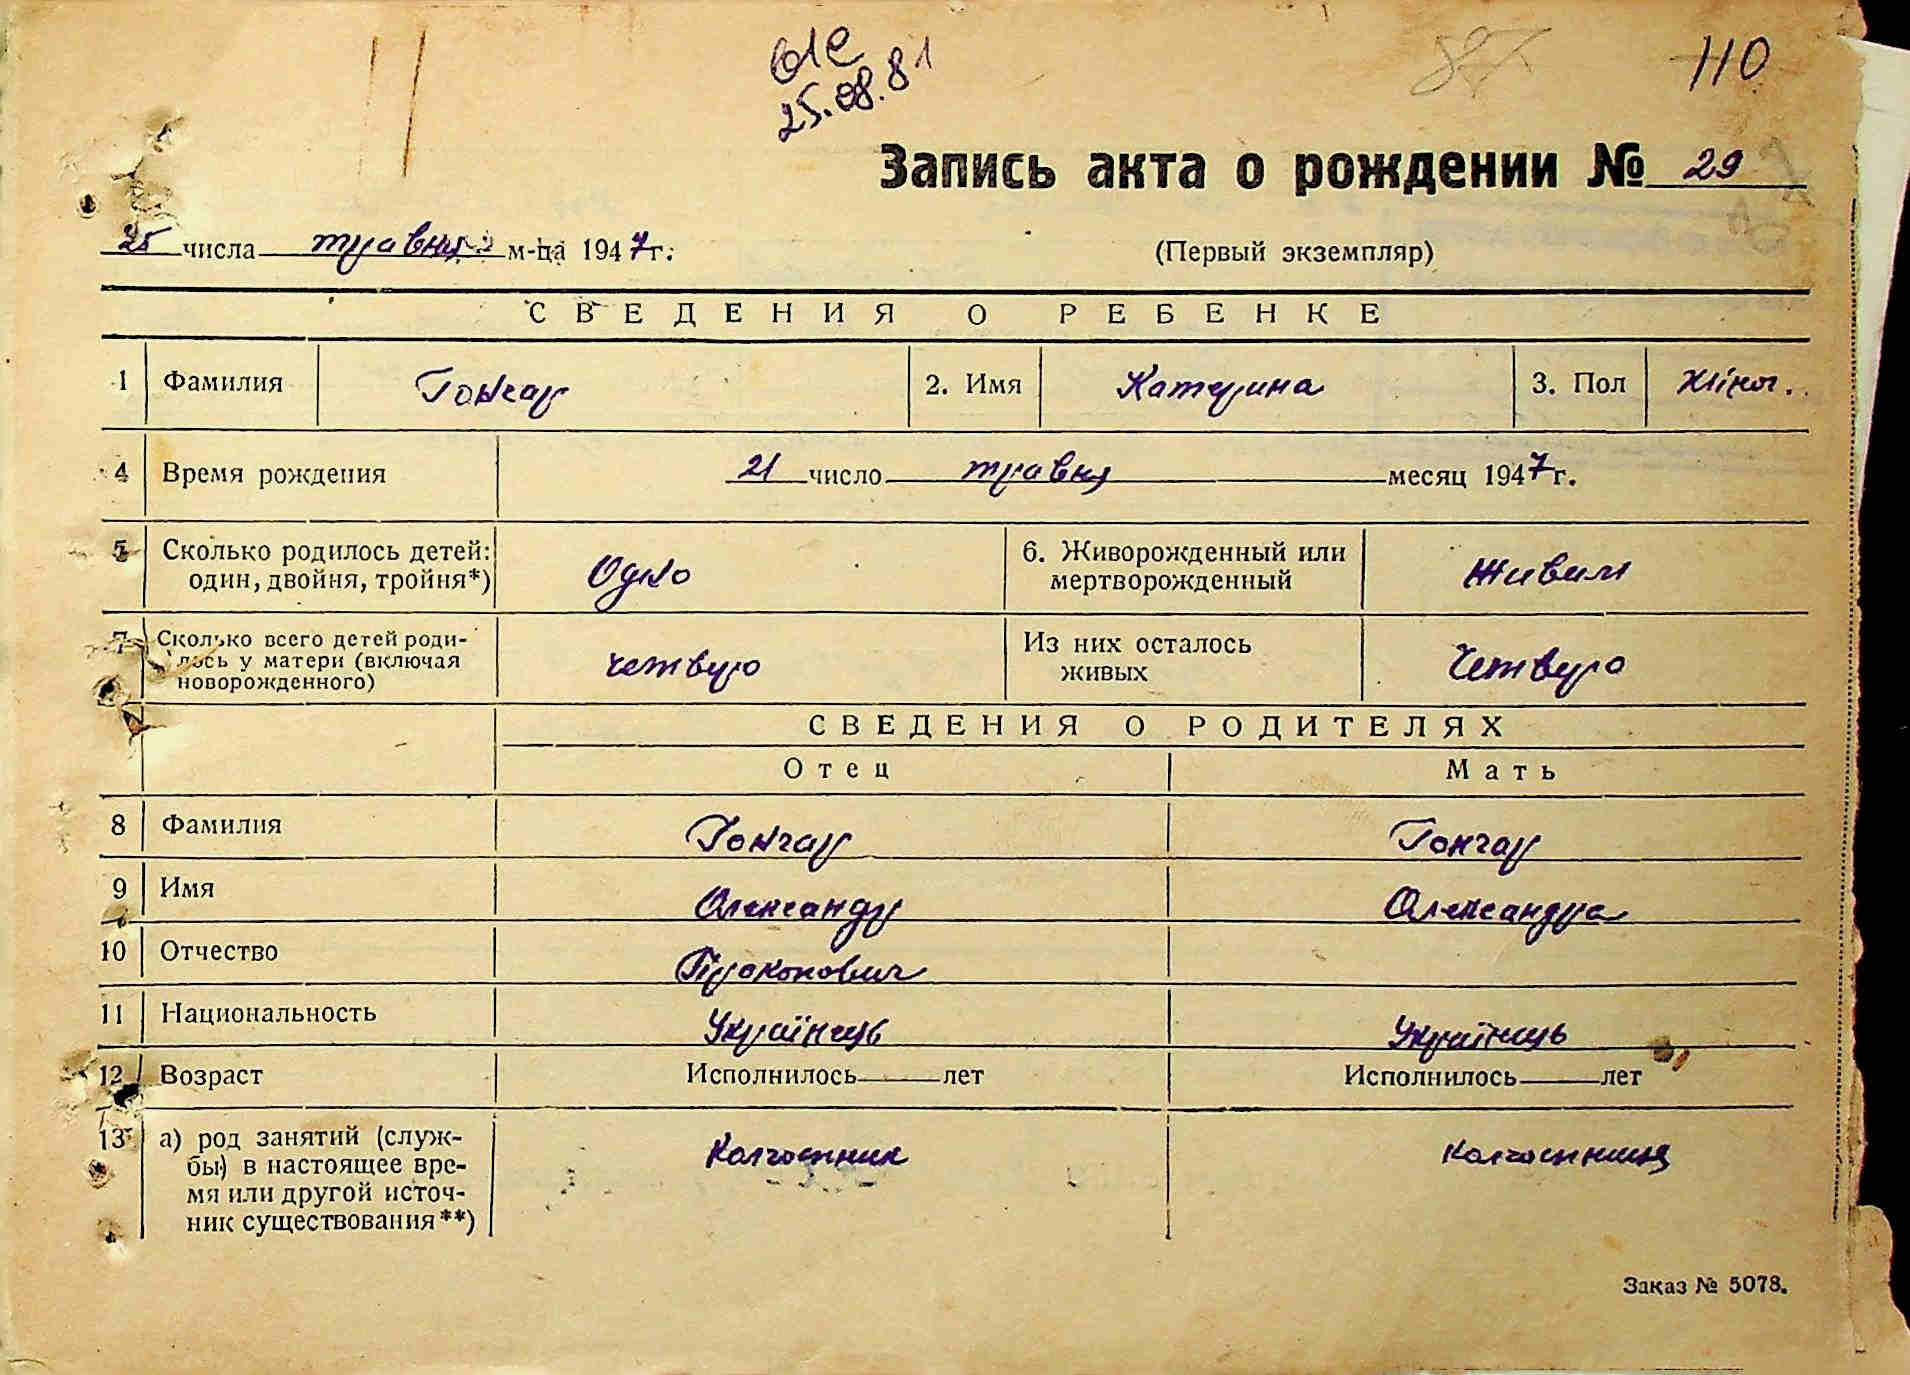 25.08.81
110
Запись акта о рождении № 29
25 числа травня м-ца 1947 г.
(Первый экземпляр)
СВЕДЕНИЯ О РЕБЕНКЕ
1 Фамилия Гончар 2. Имя Катерина 3. Пол жіноч.
4 Время рождения 21 число травня месяц 1947 г.
5 Сколько родилось детей: один, двойня, тройня*) Одно 6. Живорожденный или мертворожденный Живим
7 Сколько всего детей родилось у матери (включая новорожденного) четверо Из них осталось живых Четверо
СВЕДЕНИЯ О РОДИТЕЛЯХ
Отец Мать
8 Фамилия Гончар Гончар
9 Имя Олександр Олександра
10 Отчество Прокопович
11 Национальность Українець Українець
12 Возраст Исполнилось лет Исполнилось лет
13 а) род занятий (служ- Колгоспник Колгоспниця
бы) в настоящее вре-
мя или другой источ-
ник существования**)
Заказ № 5078.